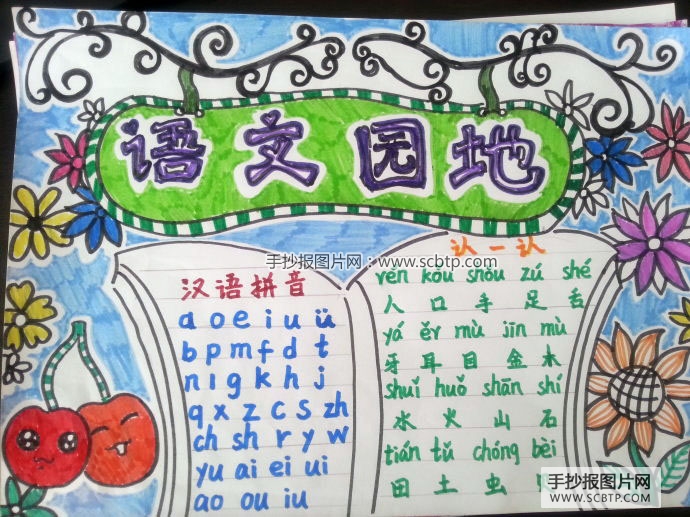 语文园地
手抄报图片网：www.scbtp.com
汉语拼音
a o e i u ü
b p m f d t
n l g k h j
q x z c s zh
ch sh r y w
yu ai ei ui
ao ou iu
认一认
rén kǒu shǒu zú shé
人 口 手 足 舌
yá ěr mù jīn mù
牙 耳 目 金 木
shuǐ huǒ shān shí
水 火 山 石
tián tǔ chóng bèi
田 土 虫
手抄报图片网
WWW.SCBTP.COM